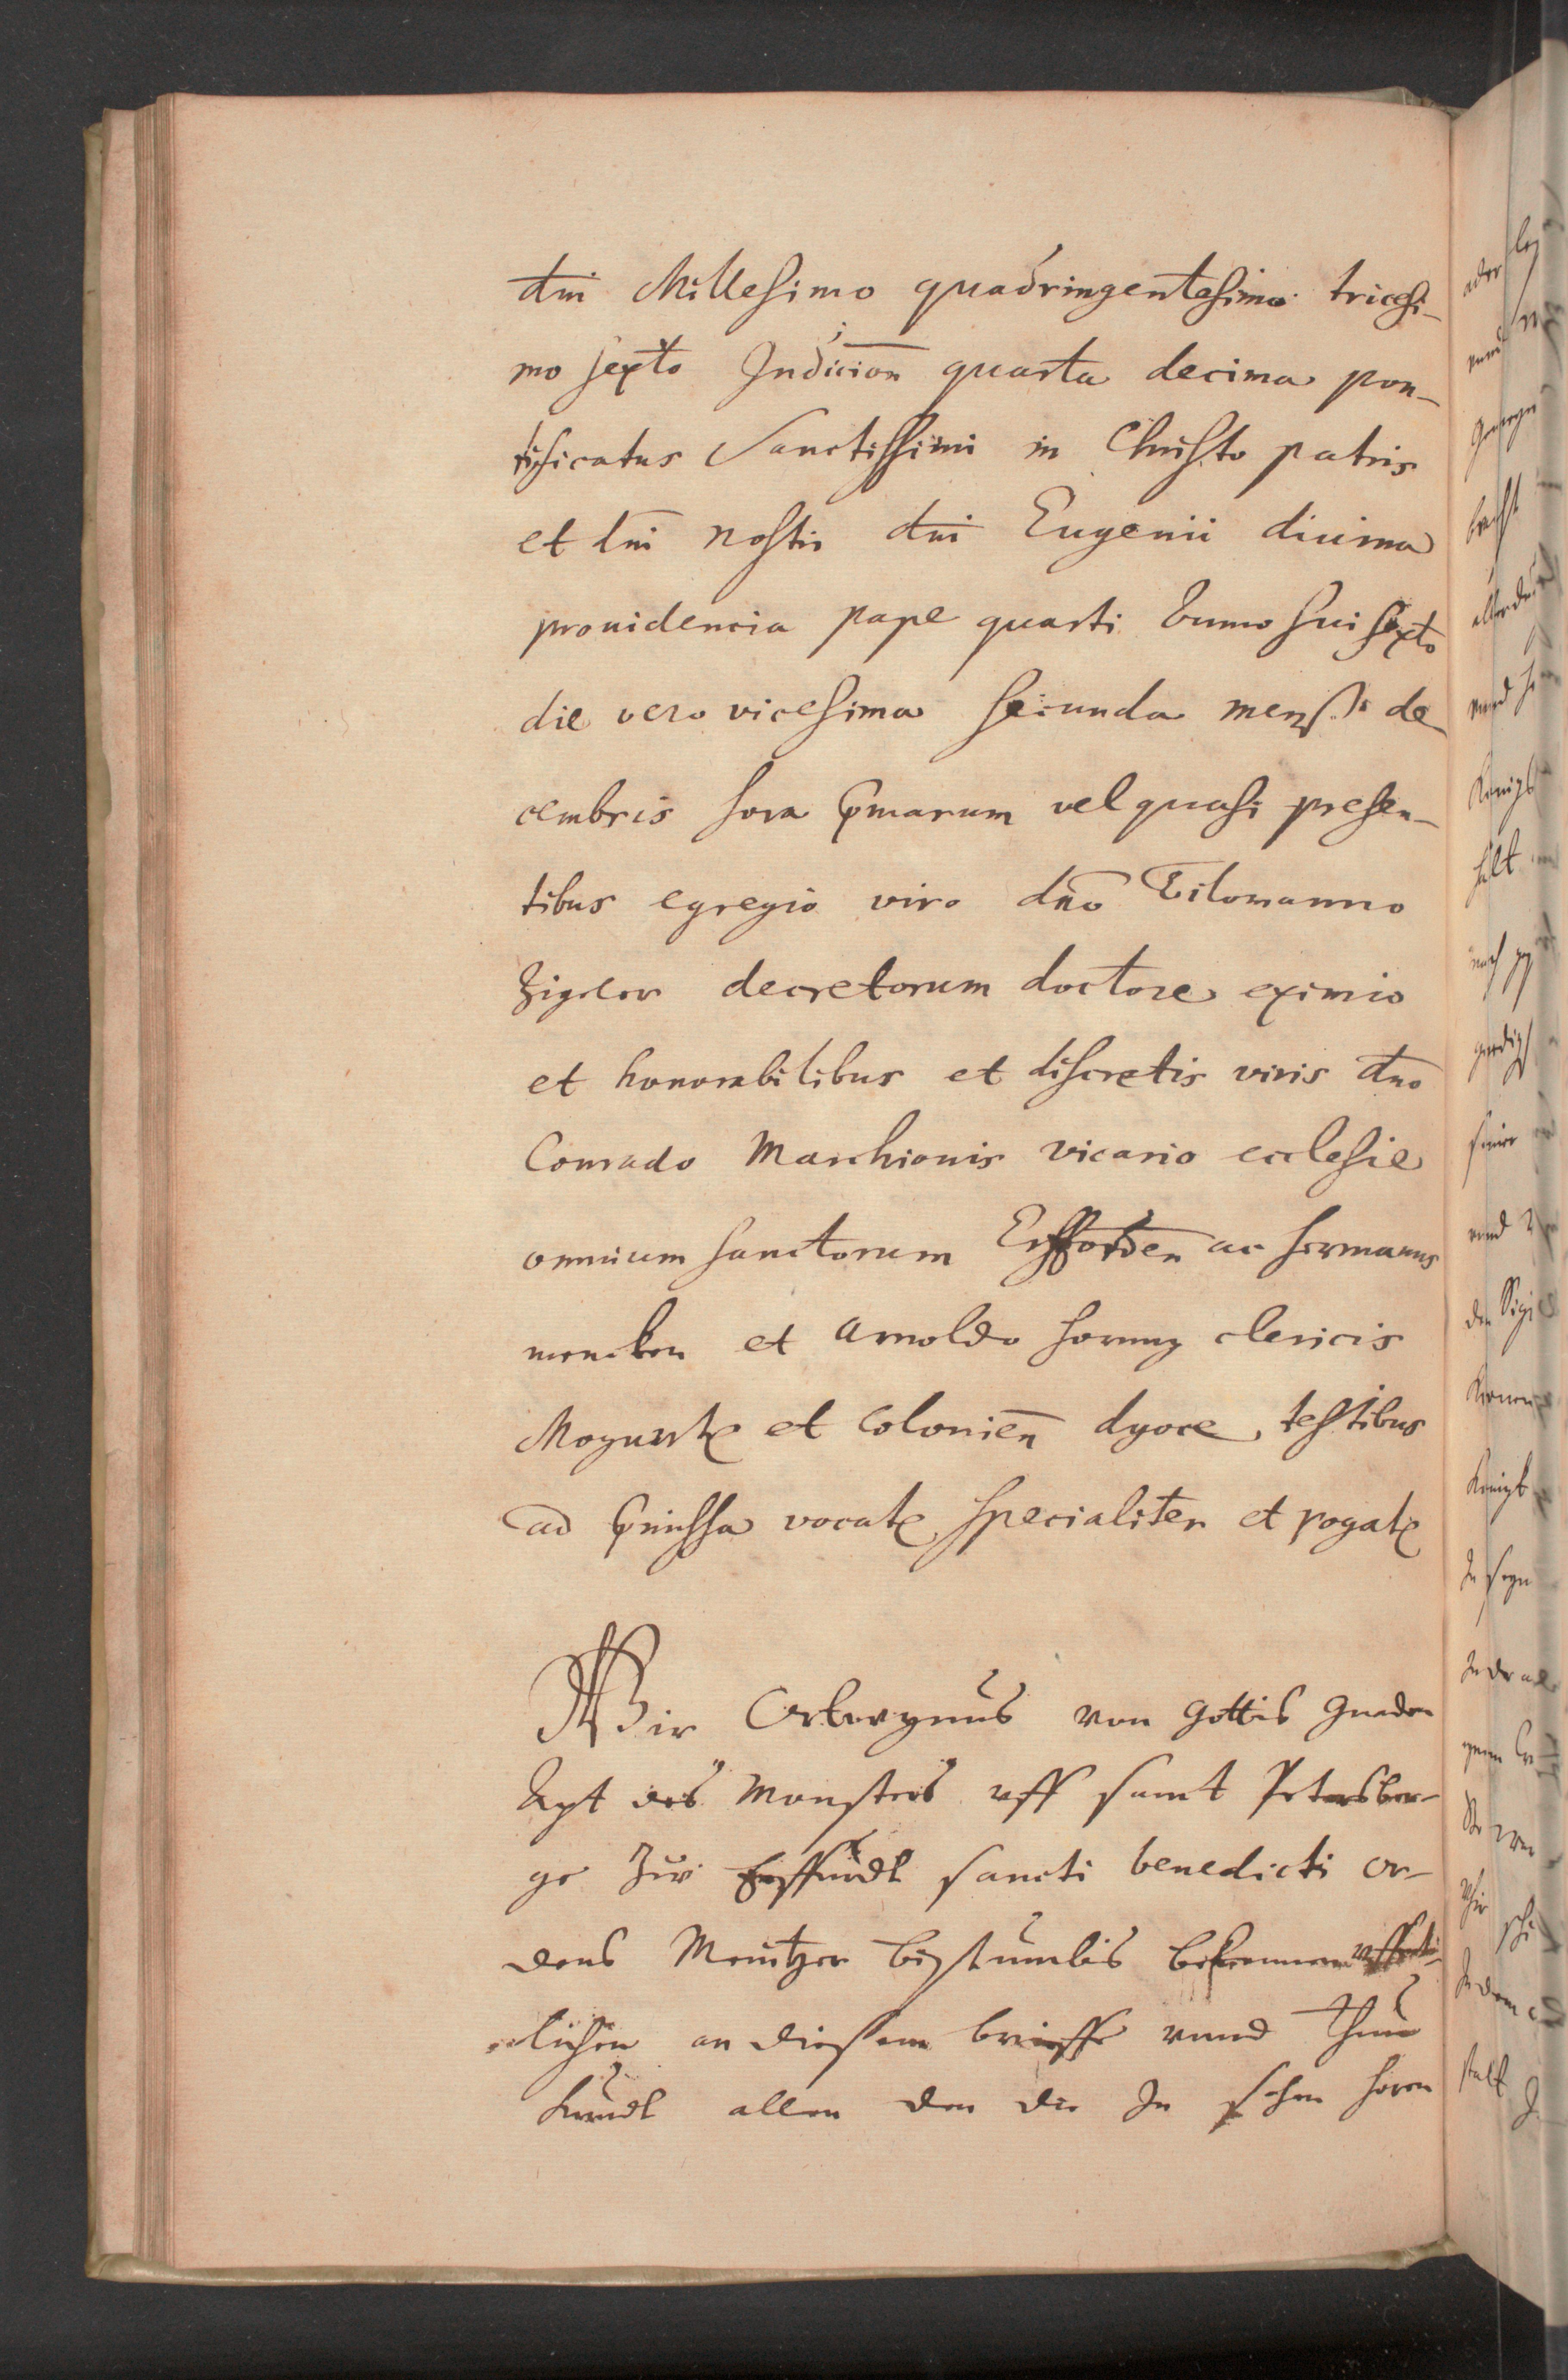 dni Millesimo quadringentesimo tricesi-
mo sexto Indicion quarta decima pon-
tificatus Sanctissimi in Christo patris
et dni nostri dni Eugenii diuina
prouidencia pape quarti Anno sui sexto
die vero vicesima secunda menss de
cembris hora pmarum vel quasi presen-
tibus egregio viro dno Tilomanno
Zigeler decretorum doctore eximio
et honorabilibus et discretis viris dno
Conrado Marchionis vicario ecclesie
omnium sanctorum Erfforden ac hermanno
mencken et Arnoldo hornung clericis
Mogunt et Colonien dyoce, testibus
ad pmissa vocat specialiter et rogat
Wir Ortwynus von gottis gnaden
Apt des Monsters uff sanct Petersber-
ge Zur Erffurdt sancti benedicti or-
dens Mentzer bisztumbs bekennen uffent-
lichen an diesem brieffe vnnd Thun
kundt allen den die In sehen horen